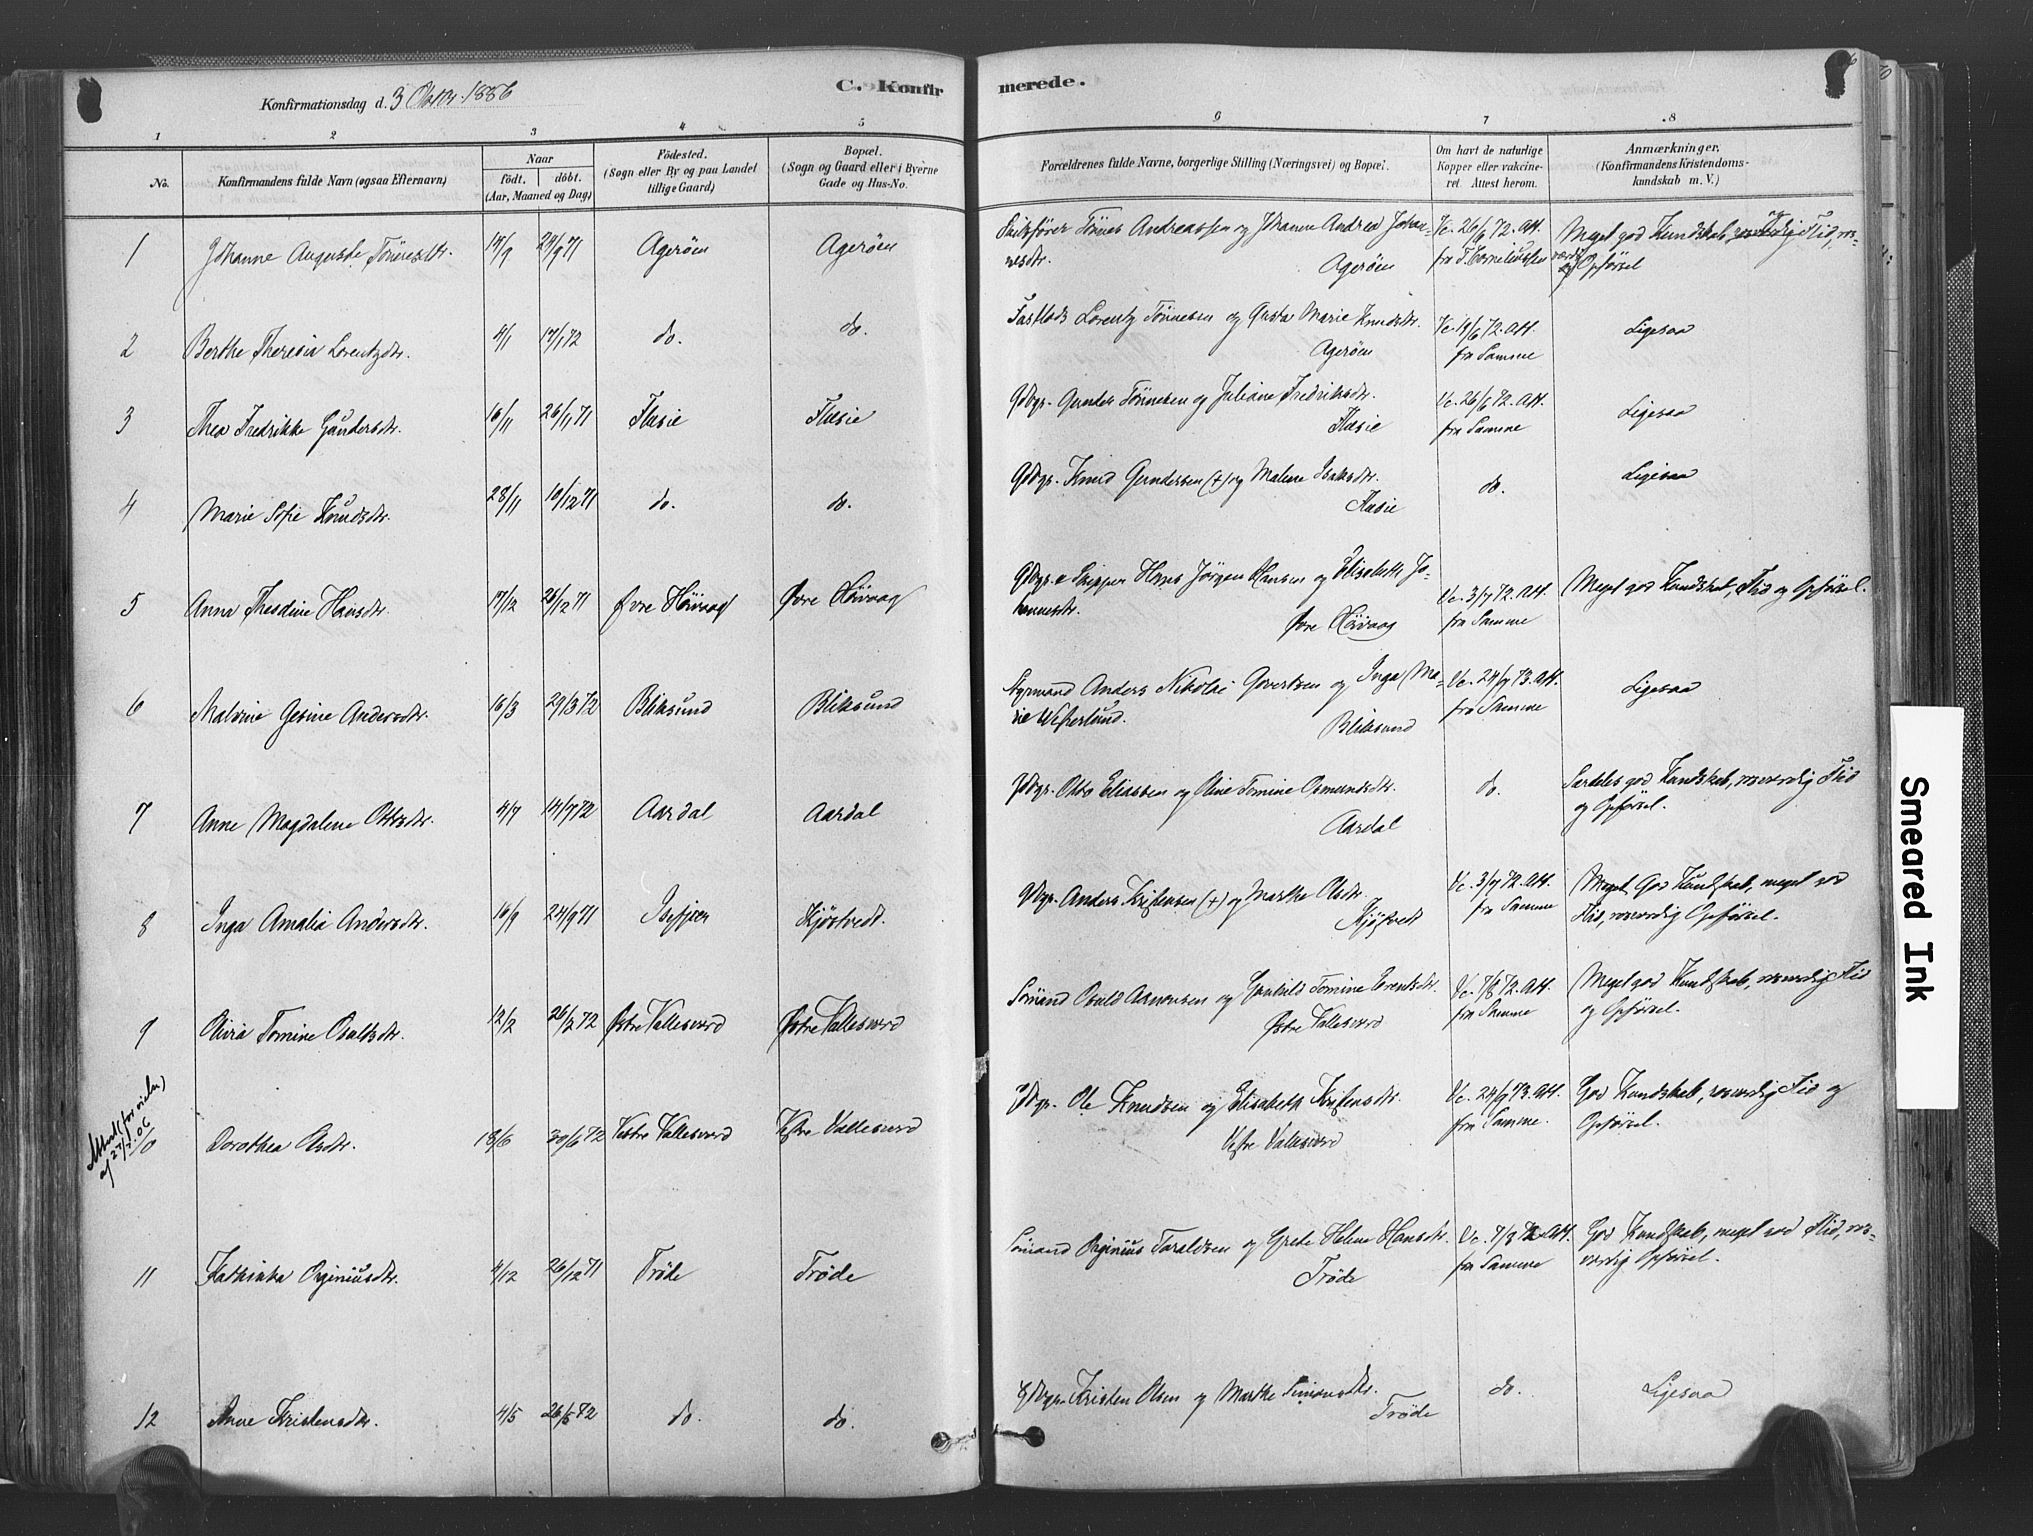 C. Konfirmerede.
Konfirmationsdag d. 3 Oktbr. 1886
1 2 3 4 5 6 7 8
No.
Konfirmandens fulde Navn (ogsaa Efternavn)
Naar
födt. döbt.
(Aar, Maaned og Dag)
Födested.
(Sogn eller By og paa Landet
tillige Gaard)
Bopæl.
(Sogn og Gaard eller i Byerne
Gade og Hus-No.
Forældrenes fulde Navne, borgerlige Stilling (Næringsvei) og Bopæl.
Om havt de naturlige
Kopper eller vakcine-
ret. Attest herom.
Anmærkninger.
(Konfirmandens Kristendoms-
kundskab m. V.)
1 Johanne Auguste Tönnesdtr. 17/9 24/9 71 Ageröen Ageröen Tönnes Andreassen og Johanne Andrea Johan- Vc. 26/6 72. Att. Meget god Kundskab, Flid,
nesdtr. Ageröen fra T. Corneliussen og Opförsel
2 Berthe Theresia Lorentzdtr. 4/1 17/1 72 do. do. Lorentz Tönnesen og Marie Knudsdtr. Vc. 19/6 72. Att. Ligesaa
Ageröen fra Samme
3 Thea Fredrikke Gundersdtr. 16/11 26/11 71 Flasie Flasie Gdbgr. Gunder Tönnesen og Juliane Fredriksdtr. Vc. 26/6 72. Att. Ligesaa
Flasie fra Samme
4 Marie Sofie Knudsdtr. 28/11 10/12 71 do. do. Gdbgr. Knud Gundersen (+) og Malene Isaksdtr. do. Ligesaa
Flasie
5 Anne Thesdine Hansdtr. 17/12 26/12 71 Øvre Hövaag Øvre Hövaag Gdbgr. e Skipper Hans Jörgen Hansen og Elisabeth Jo- Vc. 3/7 72. Att. Meget god Kundskab, Flid og Opförsel.
hannesdtr. Øvre Hövaag fra Samme
6 Malvine Gesine Andersdtr. 16/3 29/3 72 Bliksund Bliksund Styrmand Anders Nikolai Govertsen og Inga Ma- Vc. 24/7 73. Att. Ligesaa
rie Westerlund. Bliksund fra Samme
7 Anne Magdalene Ottosdtr. 4/7 14/7 72 Aardal Aardal Gdbgr. Otto Eliassen og Oline Tomine Osmundsdtr. do. Særdeles god Kundskab, rosværdig Flid
Aardal og Opförsel.
8 Inga Amalia Andersdtr. 16/9 24/9 71 Kjöstvedt. Gdbgr. Anders Kristensen (+) og Marthe Olsdtr. Vc. 3/7 72. Att. Meget God Kundskab, meget god
Kjöstvedt fra Samme Flid, rosværdig Opförsel.
9 Olivia Tomine Osuldsdtr. 12/2 26/2 72 Østre Valleswerd Østre Valleswerd Sömand Osuld Asmonsen og Gunhild Tomine Berentsdtr. Vc. 7/8 72. Att. Meget god Kundskab, rosværdig Flid
Østre Valleswerd fra Samme og Opförsel.
10 Dorothea Olsdtr. 18/6 30/6 72 Vestre Valleswerd Vestre Valleswerd Gdbgr. Ole Knudsen og Elisabeth Kristensdtr. Vc. 24/7 73. Att. God Kundskab, rosværdig Flid og
Attest (for vielse)
af 27/7 06
Vestre Valleswerd fra Samme. Opförsel.
11 Kathinka Orginiusdtr. 4/12 26/12 71 Tröde Tröde Sömand Orginius Taraldsen og Grete Helene Hansdtr. Vc. 7/8 72. Att. God Kundskab, meget god Flid, ros-
Tröde fra Samme værdig Opförsel.
12 Anne Kristensdtr. 4/5 26/5 72 do. do. Gdbgr. Kristen Olsen og Marthe Simonsdtr. do. Ligesaa
Tröde
Smeared Ink